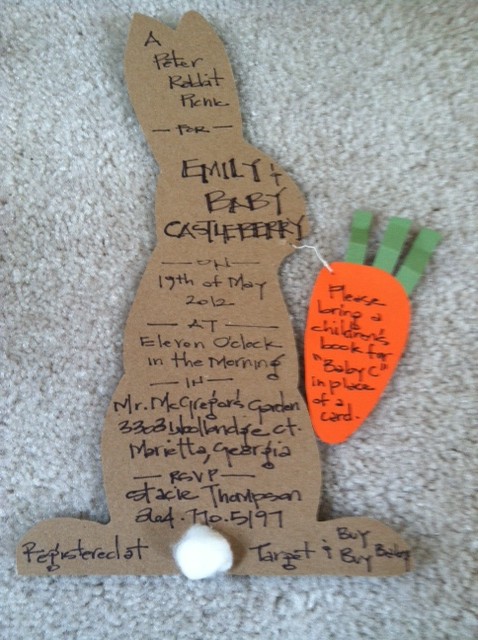 A
Peter
Rabbit
Picnic
FOR
EMILY +
BABY
CASTLEBERRY
ON
19th of May
2012
AT
Eleven O'clock
in the Morning
IN
Mr. McGregor's Garden
3303 Woolbridge ct.
Marietta, Georgia
RSVP
Stacie Thompson
770.5197
Registered at
Target & Buy
Buy Baby
Please
bring a
children's
book for
"Baby C"
in place
of a
card.